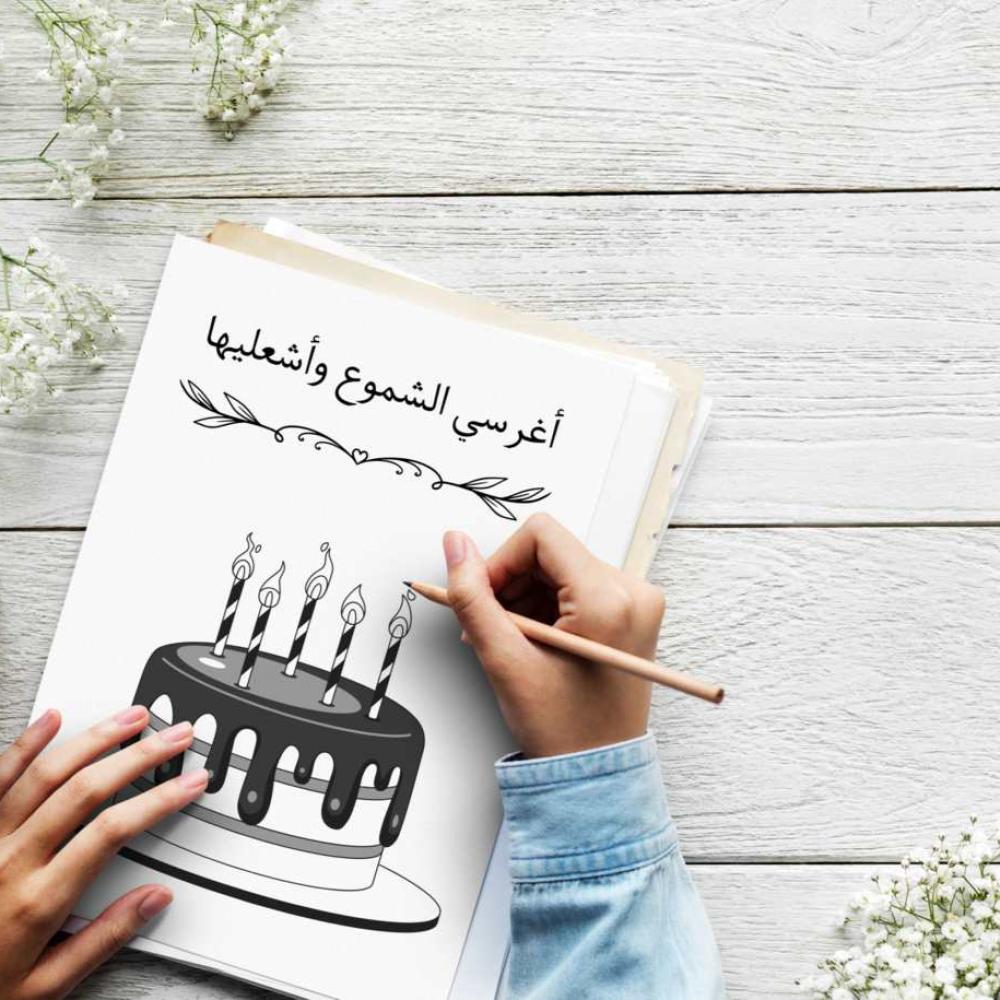 أغرسي الشموع وأشعليها